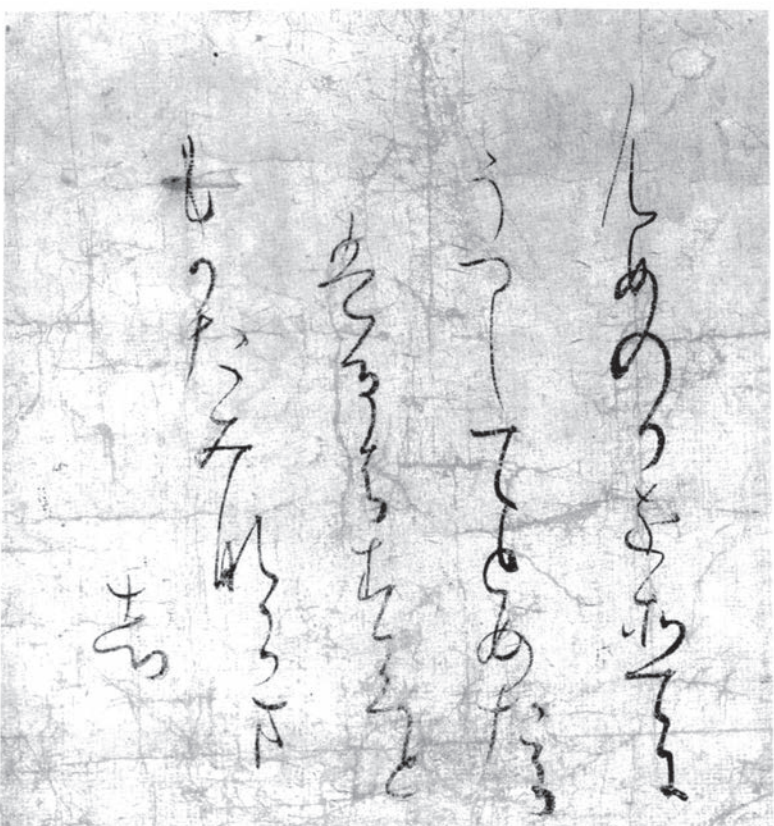 むめのかをそてに
うつしてとめたらは
はるはすくと
もかたみならま
し